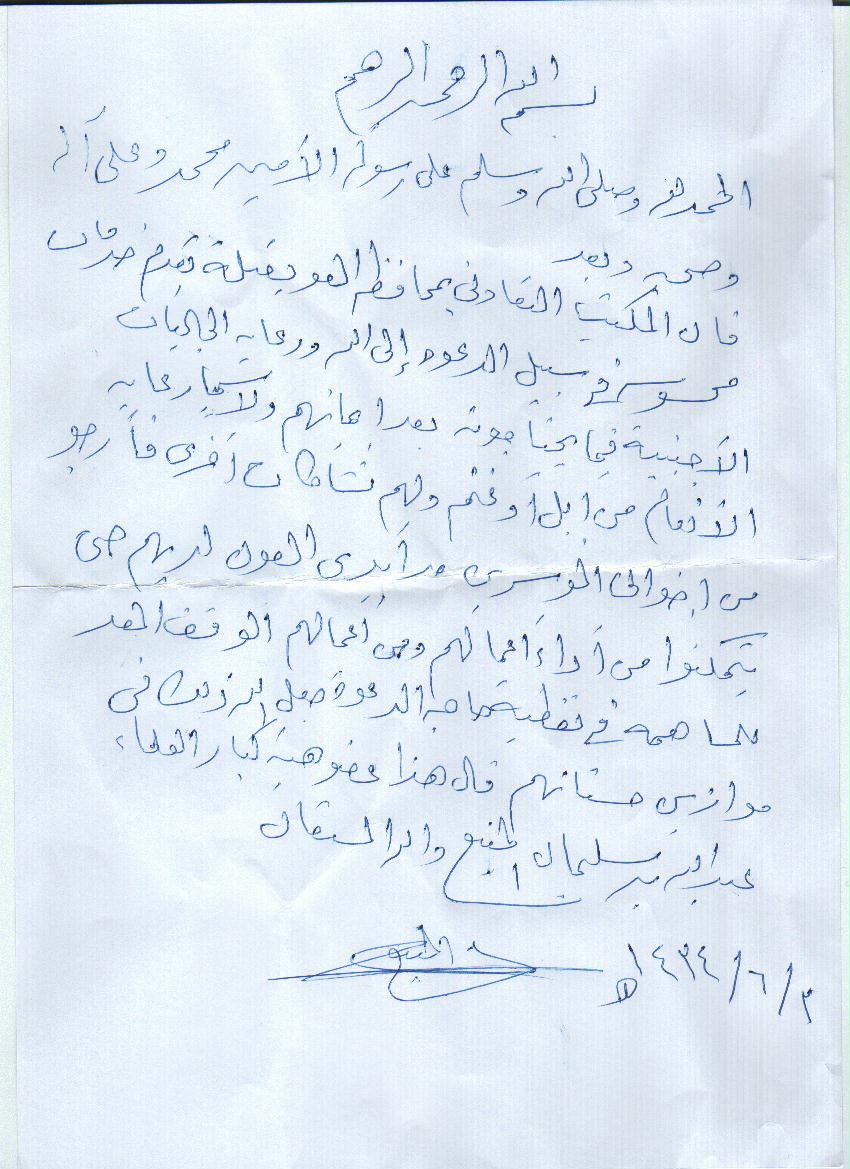 بسم الله الرحمن الرحيم
الحمد لله وصلى الله وسلم على رسوله الأمين محمد وعلى آله
وصحبه وبعد
فان المكتب التعاوني بمحافظة العويقيلة يقدم خدمات
محسوسة في سبيل الدعوه إلى الله ورعايه الجاليات
الأجنبية فيما يحتاجونه بعد ايمانهم ولاسيما رعايه
الأنعام من ابل أو غنم ولهم نشاطات أخرى فأرجو
من اخواني الموسرين مد أيدي العون لديهم حتى
يتمكنوا من أداء أعمالهم ومن أعمالهم الوقف المعد
للمساهمه في تغطية حاجه الدعوة جعل الله ذلك في
موازين حسناتهم قال هذا عضو هيئة كبار العلماء
عبدالله بن سليمان المنيع والله المستعان
٣/٦/١٤٣٤هـ المنيع